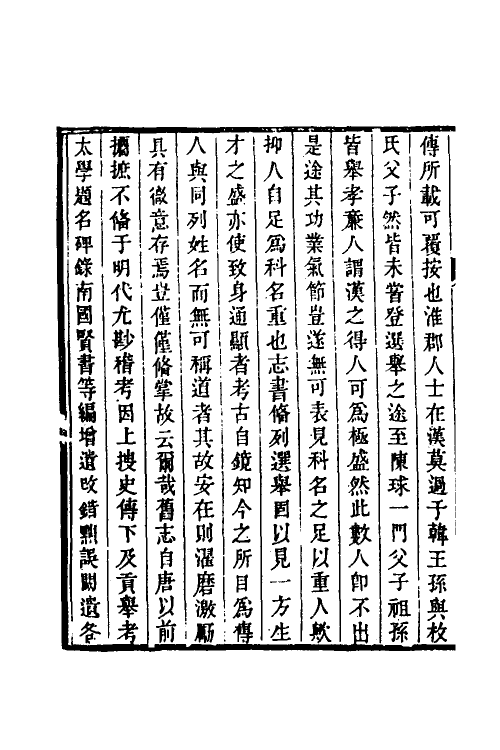 傳所載可覆按也淮郡人士在漢莫過于韓王孫與枚
氏父子然皆未嘗登選舉之途至陳球一門父子祖孫
皆舉孝亷人謂漢之得人可爲極盛然此數人卽不出
是途其功業氣節豈遂無可表見科名之足以重人歟
抑人自足爲科名重也志書俻列選舉固以見一方生
才之盛亦使致身通顯者考古自鏡知今之所目爲傳
人與同列姓名而無可稱道者其故安在則濯磨激勵
具有微意存焉豈僅僅俻掌故云爾哉舊志自唐以前
攟摭不俻于明代尤尠稽考因上搜史傳下及貢舉考
太學題名碑錄南國賢書等編增遺改錯㸃誤闕遺各